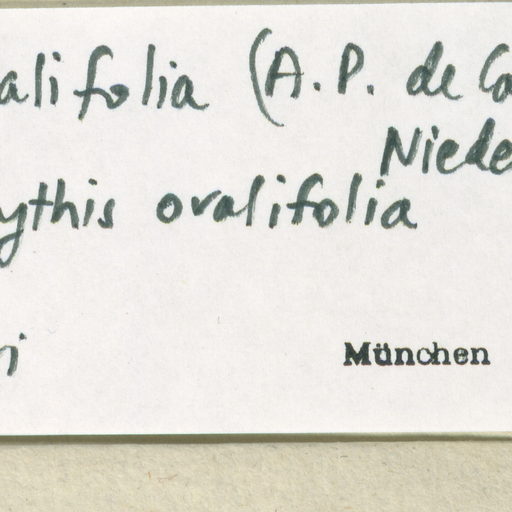 alifolia (A. P. de Ca
Niede
ythis ovalifolia
i
München